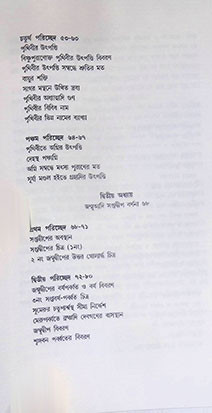 চতুর্থ পরিচ্ছেদ ৫৩-৬৩
পৃথিবীর উৎপত্তি
বিষ্ণুপুরাণোক্ত পৃথিবীর উৎপত্তি বিবরণ
পৃথিবীর উৎপত্তি সম্বন্ধে শ্রুতির মত
বায়ুর শক্তি
সাগর মন্থনে উত্থিত দ্রব্য
পৃথিবীর অন্যান্যাদি গুণ
পৃথিবীর বিবিধ নাম
পৃথিবীর ভিন্ন নামের ব্যাখ্যা
পঞ্চম পরিচ্ছেদ ৬৪-৬৭
পৃথিবীতে অগ্নির উৎপত্তি
দেহস্থ পঞ্চাগ্নি
অগ্নি সম্বন্ধে মৎস্য পুরাণের মত
সূর্য্য মণ্ডল হইতে গ্রহাদির উৎপত্তি
দ্বিতীয় অধ্যায়
জম্বুআদি সপ্তদ্বীপ বর্ণনা ৬৮
প্রথম পরিচ্ছেদ ৬৮-৭১
সপ্তদ্বীপের অবস্থান
সপ্তদ্বীপের চিত্র (১নং)
২ নং জম্বুদ্বীপের উত্তর গোলার্দ্ধ চিত্র
দ্বিতীয় পরিচ্ছেদ ৭২-৮০
জম্বুদ্বীপের বর্ষপর্ব্বত ও বর্ষ বিবরণ
৩নং সপ্তবর্ষ-পর্ব্বত চিত্র
সুমেরুর চতুঃপার্শ্বস্থ সীমা নির্দ্দেশ
মেরুপর্ব্বতে ব্রহ্মাদি দেবগণের বাসস্থান
জম্বুদ্বীপ বিবরণ
পর্ব্বতের বিবরণ